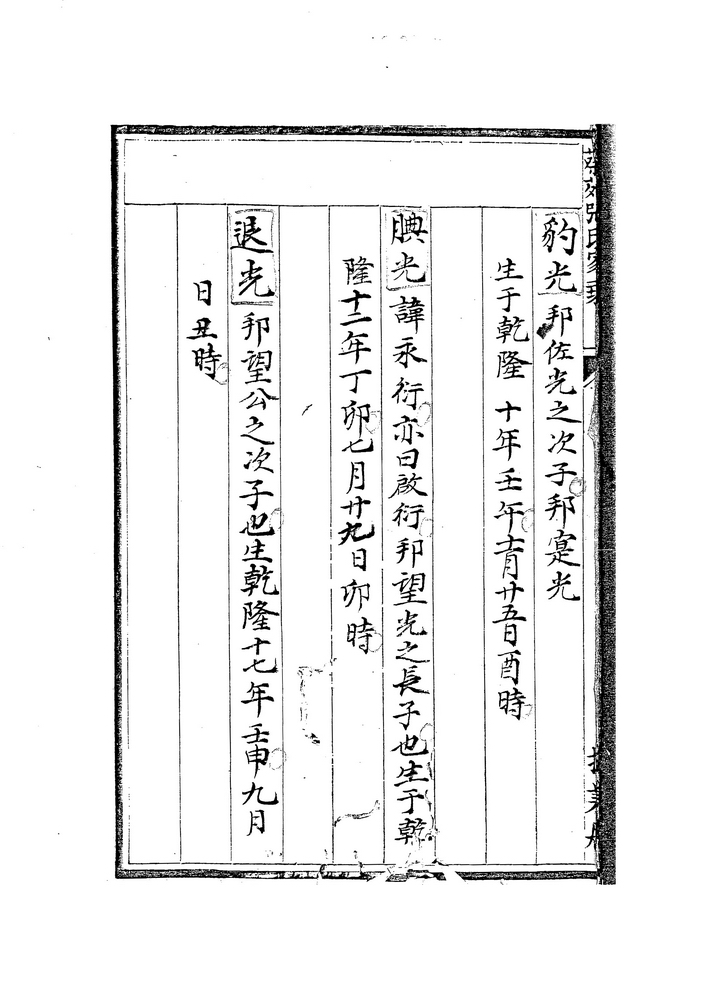 豹光邦佐光之次子邦寔光
生于乾隆 十年壬午十一月廿五日酉時
腆光諱永衍亦曰啟衍邦望光之長子也生于乾
隆十二年丁卯七月廿九日卯時
退光邦望公之次子也生乾隆十七年壬申九月
日丑時
張氏家